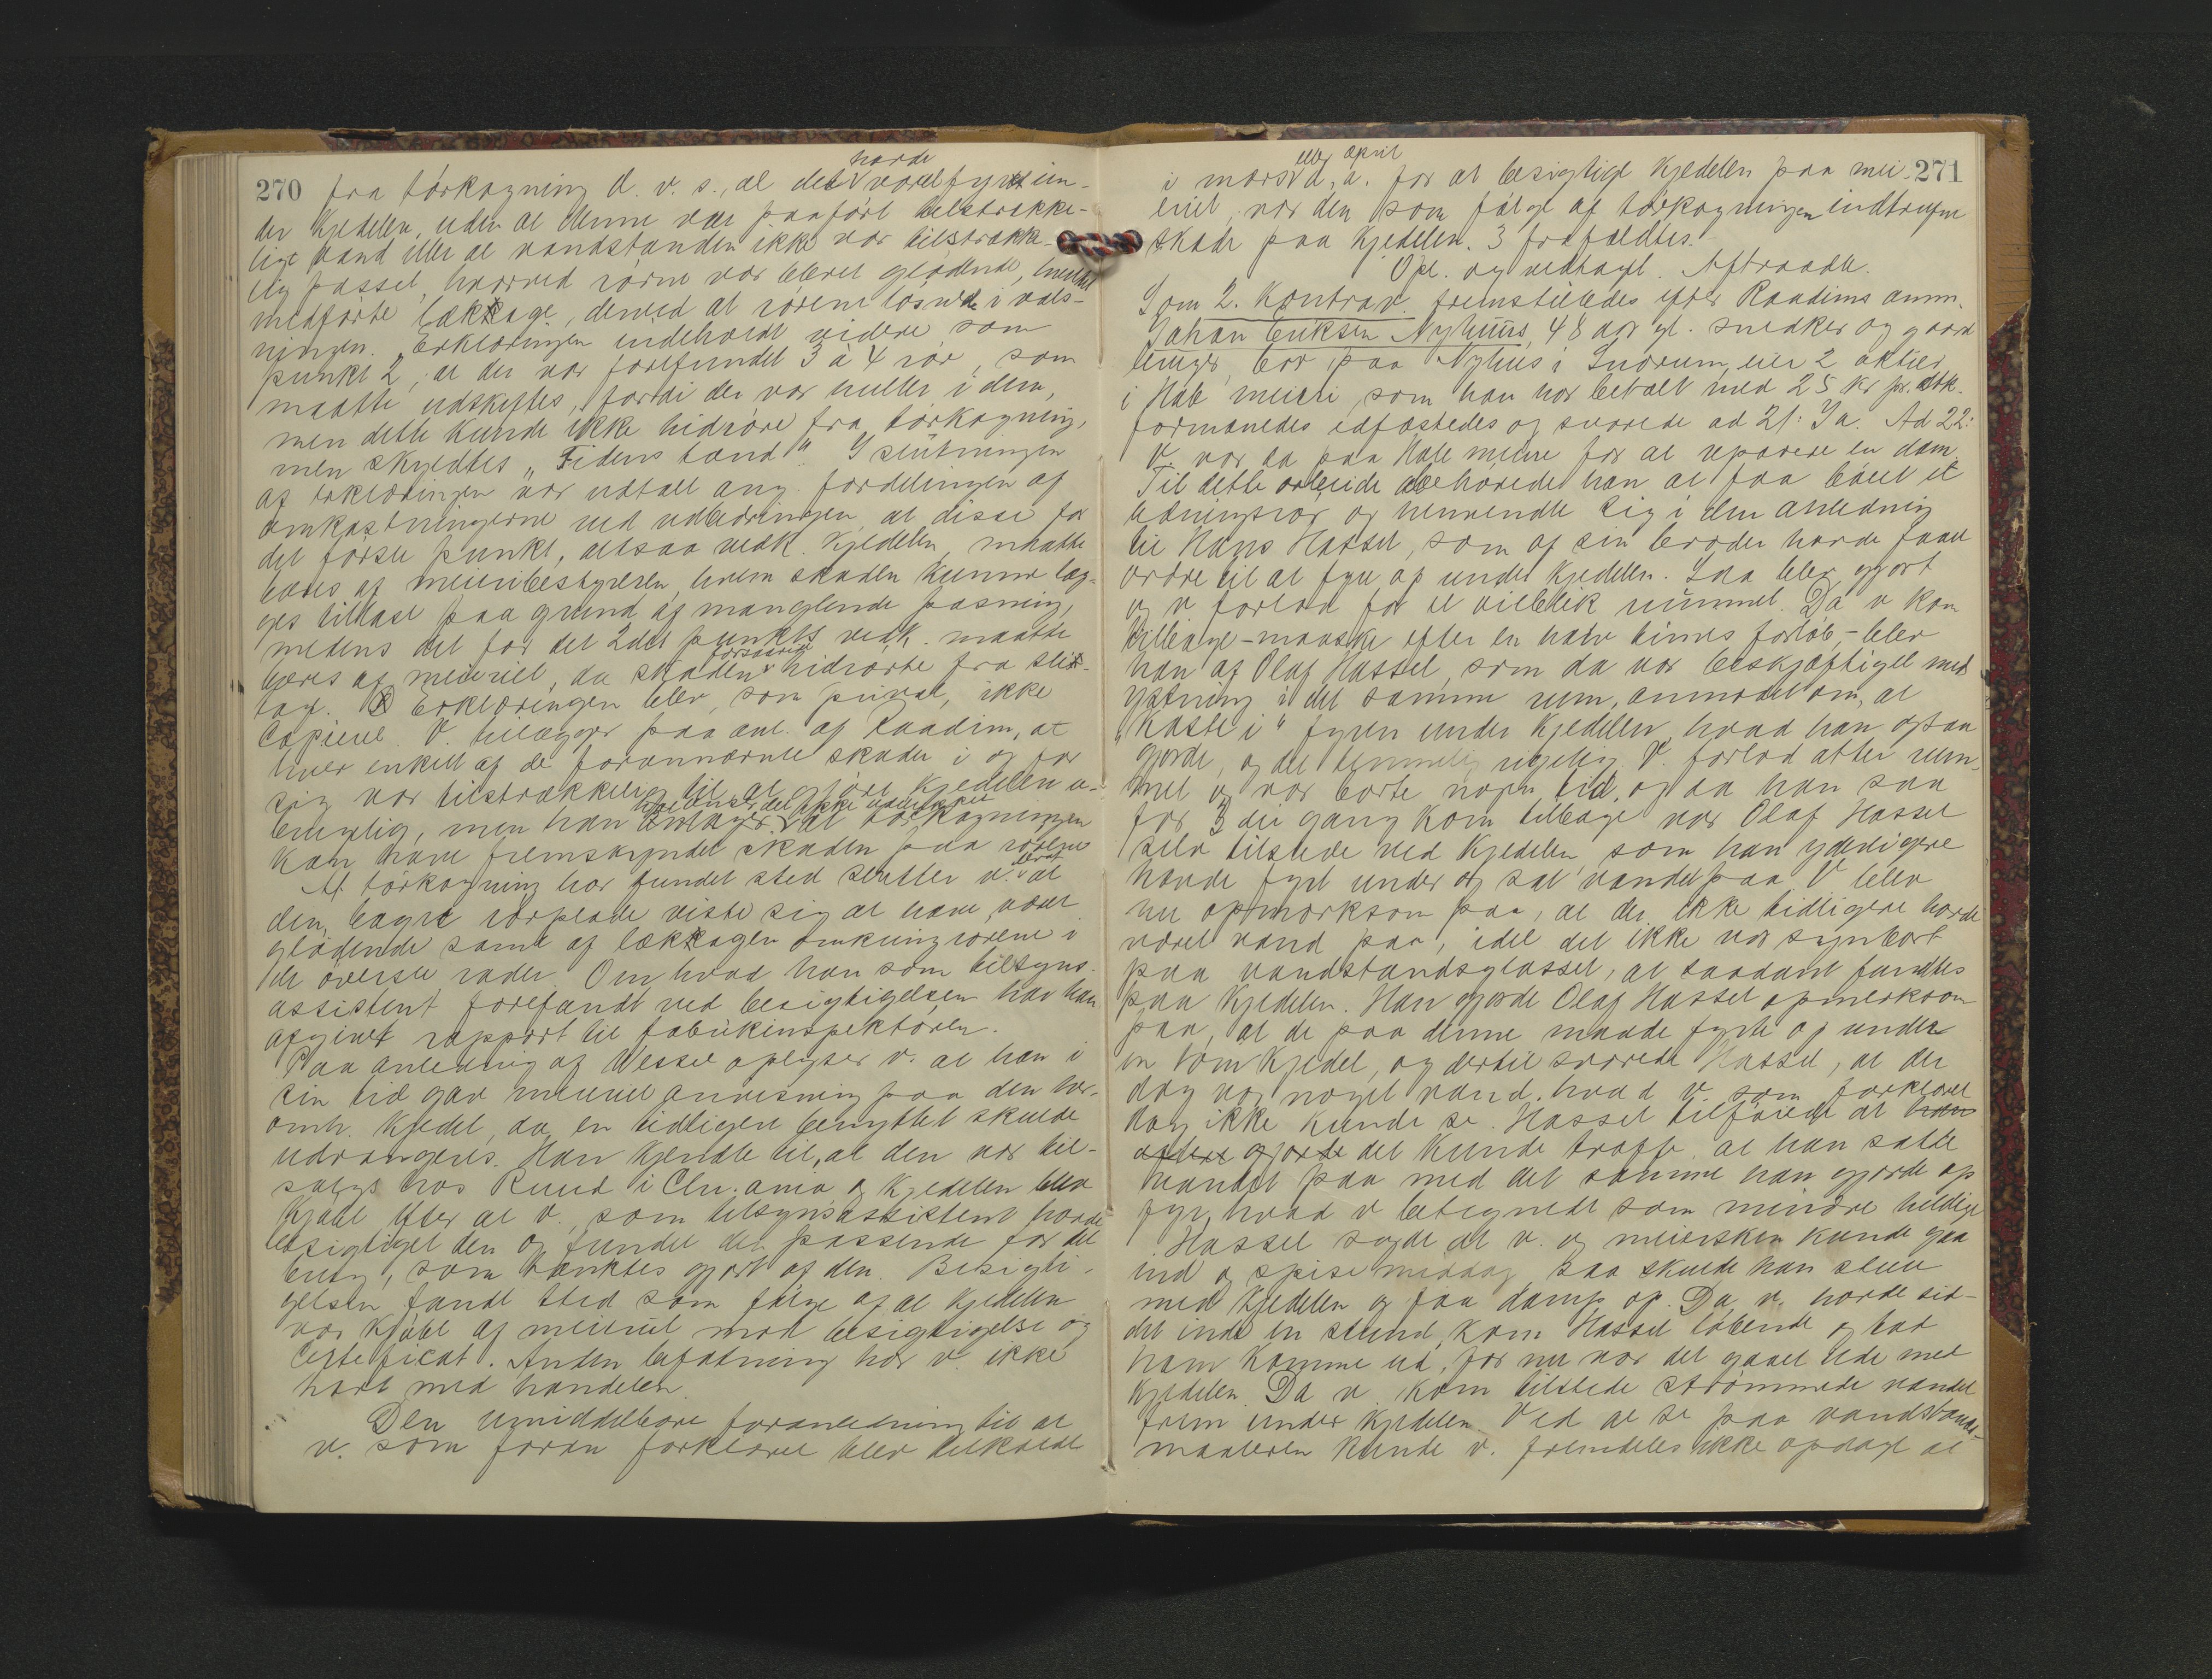 270
harde
fra tørkogning d. v. s., at det var fyret un-
der Kjedelen, uden at denne var paaført tilstrække-
lige vand eller at vandstanden ikke var tilstrække-
lig passet, hvorved rørene var blevet glødende, hvilket
medførte lækkage, derved at rørene løsnede i vals-
ningen. Erklæringen indeholdt videre som
punkt 2, at der var forefundet 3 à 4 rør, som
maatte udskiftes, fordi der var huller i dem,
men dette kunde ikke hidrøre fra tørkogning,
men skyldtes „Tidens tand". I slutningen
af erklæringen var udtalt ang. fordelingen af
omkostningerne ved udbedringen, at disse for
det første punkt, altsaa vedk. Kjedelen, maatte
bæres af meieribestyreren, hvem skaden kunne læg-
ges tillast paa grund af manglende pasning,
medens det for det 2det punkts vedk. maatte
forsaavidt
bæres af meieriet, da skaden hidrørte fra slit-
tag. Erklæringen blev, som privat, ikke
copieret. V. tilføyer paa anl. af Raadim, at
hver enkelt af de forannævnte skader i og for
sig var tilstrækkelig til at gjøre Kjedelen u-
brugelig, men han antager at tørkogningen
kan have fremskyndet skaden paa rørene
At tørkogning har fundet sted slutter v. at
den bagre rørplade viste sig at have været
glødende samt af lækkagen omkring rørene i
de øverste rader. Om hvad han som tilsyns-
assistent forefandt ved besigtigelsen har han
afgivet rapport til fabrikinspektøren.
Paa anledning af Wessel oplyser v. at han i
sin tid gav meieriet anvisning paa den her-
omh. Kjedel, da en tidligere benyttet skulde
udrangeres. Han kjendte til, at den var til-
salgs hos Ruud i Chr.ania og Kjedelen blev
kjøbt efter at v., som tilsynsassistent havde
besigtiget den og fundet den passende for det
brug, som tænktes gjort af den. Besigti-
gelsen fandt sted som følge af at Kjedelen
var kjøbt af meieriet mod besigtigelse og
Certificat. Anden befatning har v. ikke
havt med handelen.
Den umiddelbare foranledning til at
v. som foran forklaret blev tilkaldt
271
eller april
i mars d. a. for at besigtige Kjedelen paa mei-
eriet, var den som følge af tørkogningen indtrufne
skade paa Kjedelen. 3 frafaldtes.
Opl. og vedtaget. Aftraadte.
Som 2. Kontrav. fremstilledes efter Raadims anm.
Johan Eriksen Nyhuus, 48 aar gl. snedker og gaard
bruger, bor paa Nyhus i Snarum, eier 2 aktier
i Hals meieri, som han har betalt med 25 kr pr. stk.
formanedes edfæstedes og svarede ad 21: Ja. Ad 22:
V. var da paa Hals meieri for at reparere en dam.
Til dette arbeide behøvede han at faa bøiet et
ledningsrør og henvendte sig i den anledning
til Hans Hassel, som af sin broder havde faaet
ordre til at fyre op under Kjedelen. Saa blev gjort
og v forlod for et øieblik rummet. Da v kom
tilbage – maaske efter en halv times forløb – blev
han af Olaf Hassel, som da var beskjæftiget med
ystning i det samme rum, anmodet om, at
„kaste i" fyren under Kjedelen, hvad han ogsaa
gjorde, og det temmelig rigelig. V. forlod atter rum-
met og var borte nogen tid, og da han saa
for 3die gang kom tilbage var Olaf Hassel
selv tilstede ved Kjedelen, som han yderligere
havde fyret under og sat vandet paa. V blev
nu opmerksom paa, at der ikke tidligere havde
været vand paa, idet det ikke var synbart
paa vandstandsglasset, at saadant fandtes
paa Kjedelen. Han gjorde Olaf Hassel opmerksom
paa, at de paa denne maade fyrte op under
en tom Kjedel, og dertil svarede Hassel, at der
dog var noget vand, hvad v. som forklaret
dog ikke kunde se. Hassel tilføiede at
det kunde træffe at han satte
vandet paa med det samme han gjorde op
fyr, hvad v betegnede som mindre heldig.
Hassel sagde at v. og meiersken kunde gaa
ind og spise middag, saa skulde han stelle
med Kjedelen og faa damp op. Da v. havde sid-
det inde en stund, kom Hassel løbende og bad
ham komme ud, for nu var det gaaet ude med
Kjedelen. Da v kom tilstede strømmede vandet
frem under Kjedelen. Ved at se paa vandstands-
maaleren kunde v. fremdeles ikke opdage at